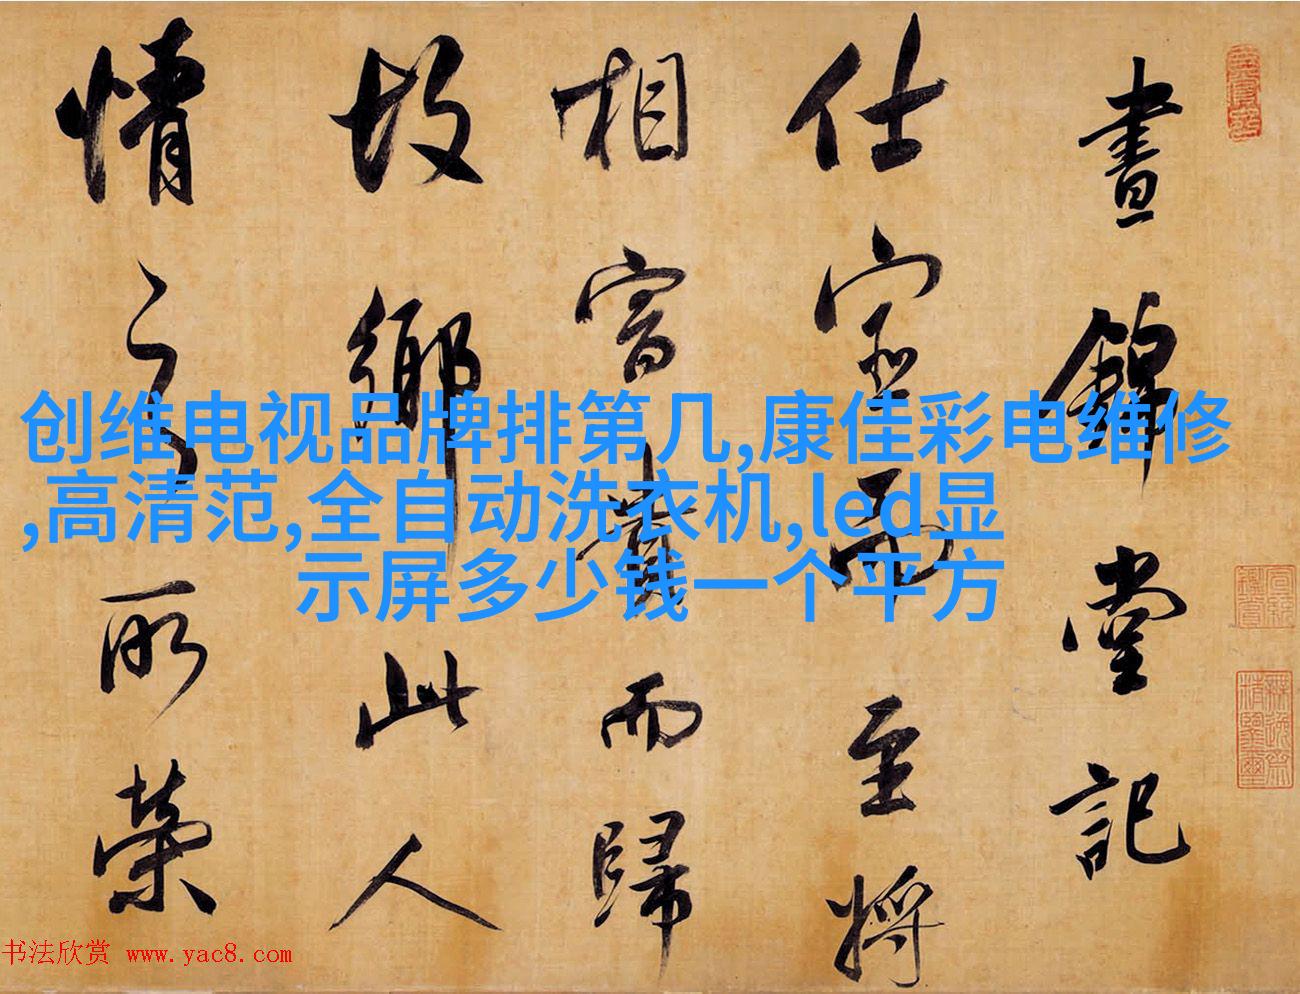 晝錦堂記
仕宦而至將
相富貴而歸
故鄉此人
情之所榮
创维电视品牌排第几,康佳彩电维修
,高清范,全自动洗衣机,led显
示屏多少钱一个平方
书法欣赏 www.yac8.com